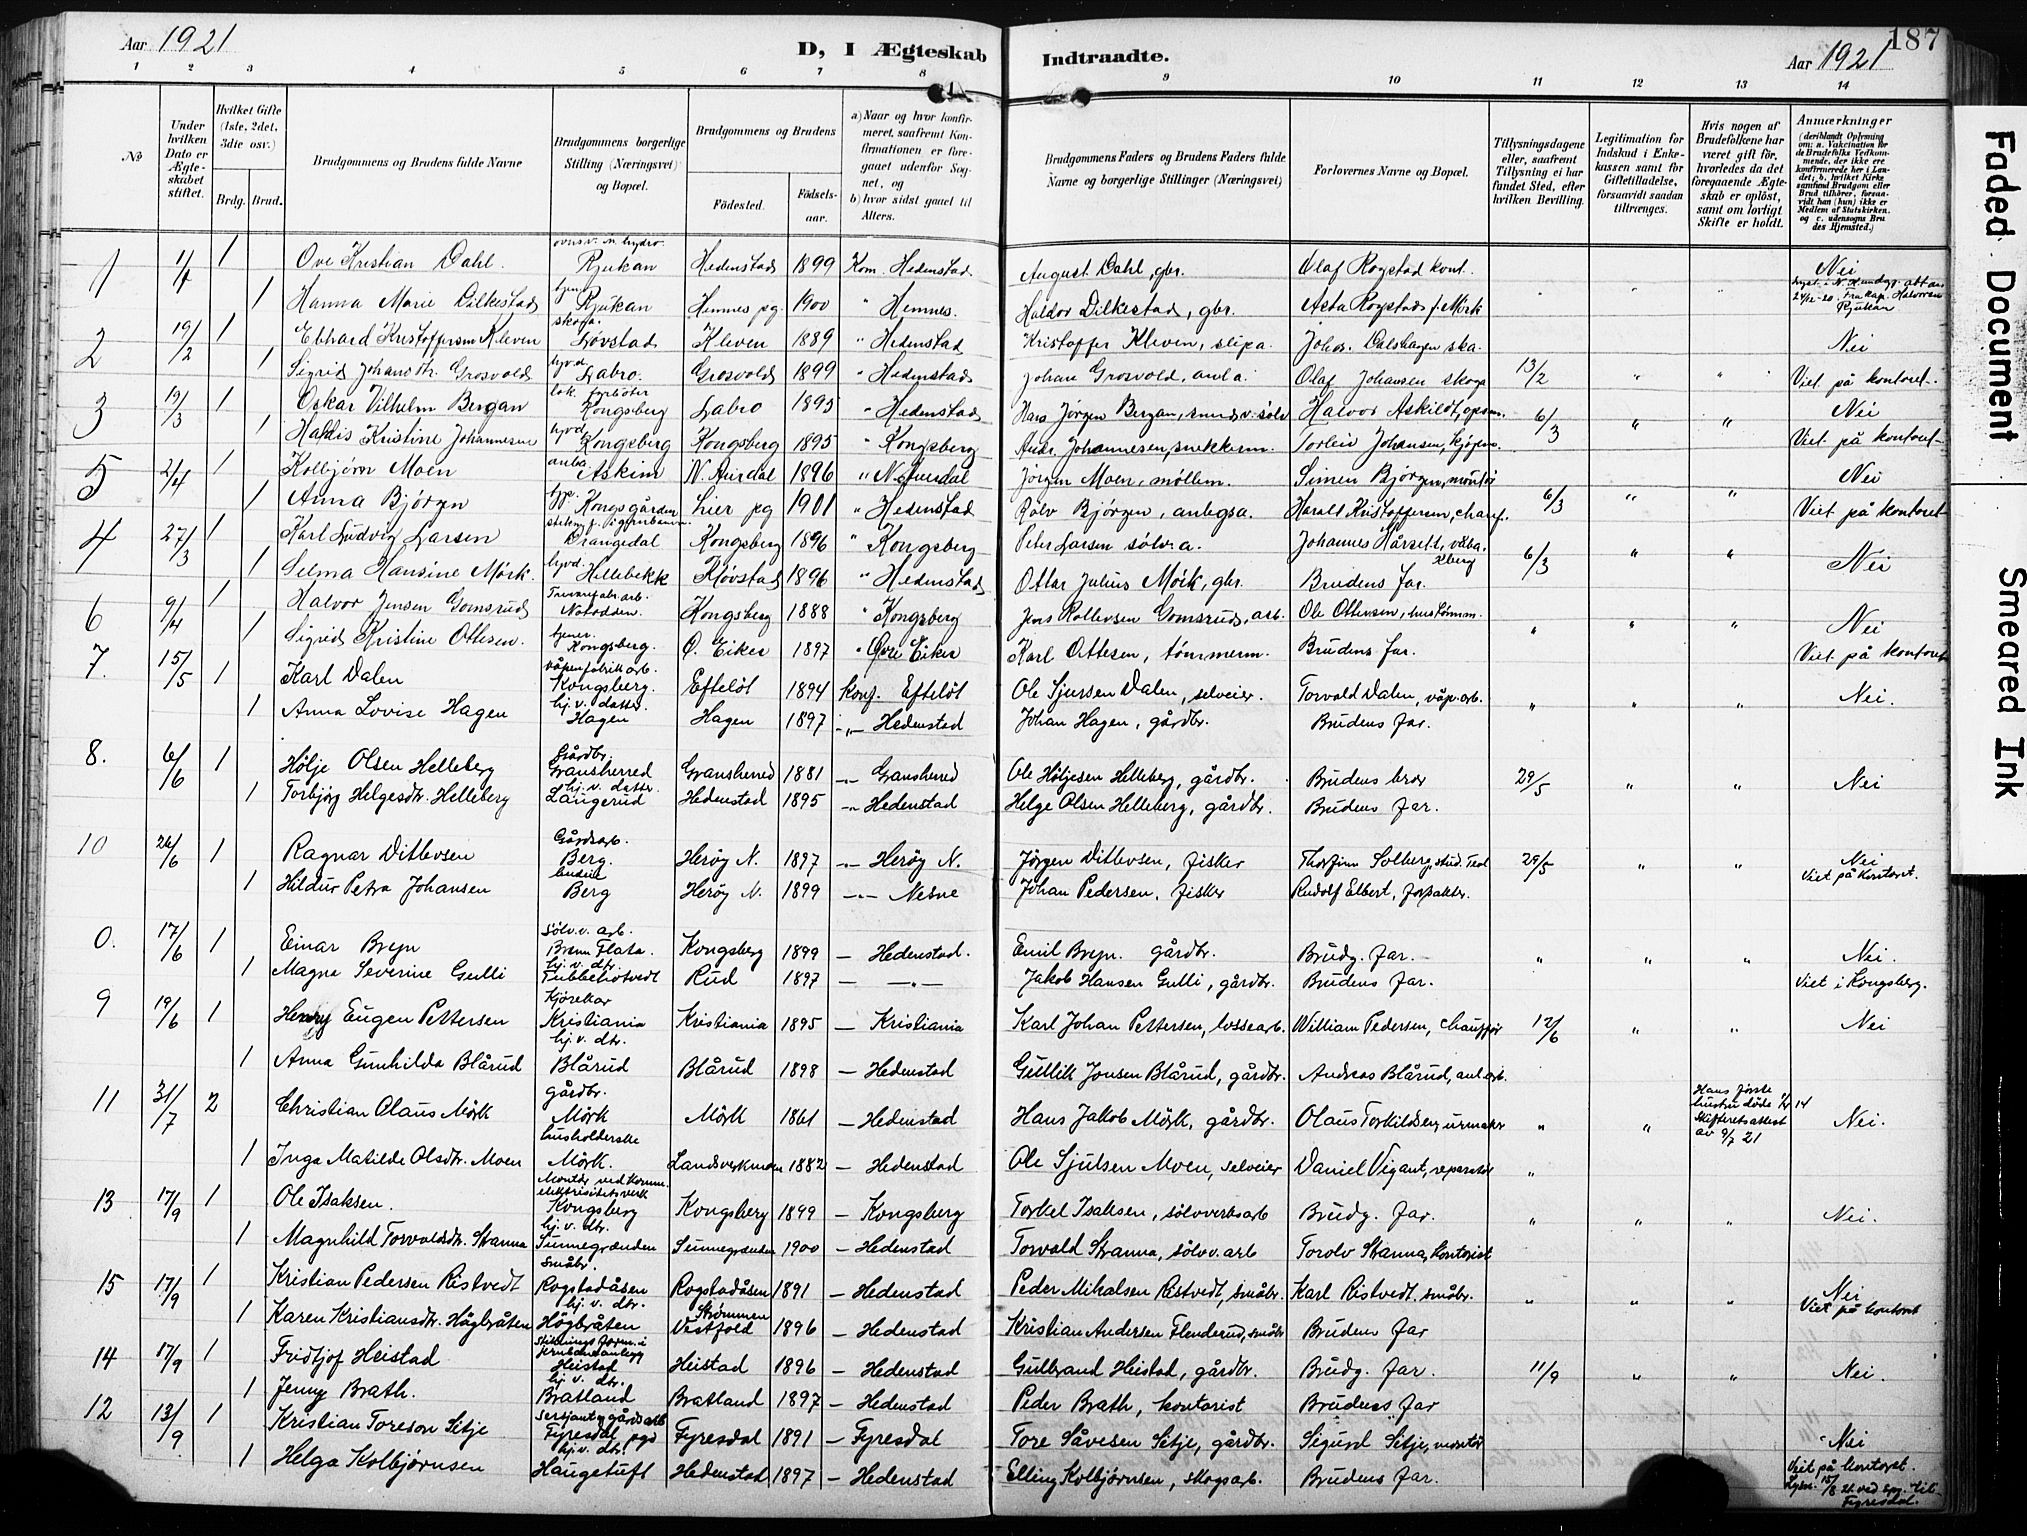 Aar 1921
D, I Ægteskab Indtraadte.
Aar 1921
187
1 2 3 4 5 6 7 8 9 10 11 12 13 14
No
Under hvilken Dato er Ægteskabet stiftet.
Hvilket Gifte (1ste, 2det, 3die osv.)
Brdg. Brud.
Brudgommens og Brudens fulde Navne
Brudgommens borgerlige Stilling (Næringsvei) og Bopæl.
Brudgommens og Brudens
Fødested. Fødselsaar.
a) Naar og hvor konfirmeret, saafremt Konfirmationen er foregaaet udenfor Sognet, og
b) hvor sidst gaaet til Alters.
Brudgommens Faders og Brudens Faders fulde Navne og borgerlige Stillinger (Næringsvei)
Forlovernes Navne og Bopæl.
Tillysningsdagene eller, saafremt Tillysning ei har fundet Sted, efter hvilken Bevilling.
Legitimation for Indskud i Enkekassen samt for Giftetilladelse, forsaavidt saadan tiltrænges.
Hvis nogen af Brudefolkene har været gift før, hvorledes da det foregaaende Ægteskab er opløst, samt om lovligt Skifte er holdt.
Anmærkninger
(deriblandt Oplysning om: a. Vakcination for de Brudefolks Vedkommende, der ikke ere konfirmerede her i Landet; b. hvilket Kirkesamfund Brudgom eller Brud tilhører, forsaavidt han (hun) ikke er Medlem af Statskirken, og c. udensogns Brudes Hjemsted.)
1 1 Ove Kristian Dahl. Rjukan Hedenstad 1899 Kom. Hedenstad August Dahl, gbr. Olaf Rogstad kont. Nei
1 Hanna Marie Dilkestad Rjukan Hemnes pg. 1900 " Hemnes. Haldor Dilkestad, gbr. Asta Rogstad f. Mörk
2 19/2 1 Kristoffersen Kleven Løvstad Kleven 1889 " Hedenstad Kristoffer Kleven, slipa. Nei
1 Sigrid Johansdtr. Grosvold Labro. Grosvold 1899 " Hedenstad Johan Grosvold, anl a. Olaf Johansen skoga 13/2 " " Viet på kontoret.
3 19/3 1 Oskar Vilhelm Bergan lok. fyrbøter Kongsberg Labro 1895 " Hedenstad Hans Jørgen Bergan, Halvor Askildt, 6/3 " " Nei
1 Haldis Kristine Johannesen Kongsberg Kongsberg 1895 " Kongsberg Andr. Johannesen, snekkerm. Torleiv Johansen, kjøpm. Viet på kontoret
5 2/4 1 Kolbjörn Moen Askim N. Aurdal 1896 " N. Aurdal Jörgen Moen, møllem. Simen Björgen, montör 6/3 " " Nei
1 Anna Björgen Kongsgården Lier pg 1901 " Hedenstad Rolv Björgen, anlegsa. Harald Kristoffersen, chauf. Viet på kontoret
4 27/3 1 Karl Ludvig Larsen Drangedal Kongsberg 1896 " Kongsberg Peter Larsen sølv. a. Johannes 6/3 " " Nei
1 Selma Hansine Mörk. Hellebekk Kløvstad 1896 " Hedenstad Ottar Julius Mörk, gbr. Brudens far.
6 9/4 1 Halvor Jensen Gomsrud Notodden. Kongsberg 1888 " Kongsberg Jens Gomsrud, arb. Ole Ottersen, hustømm. " " " Nei
1 Sigrid Kristine Ottesen. tjener. Kongsberg. Ø. Eiker 1897 " Øvre Eiker Karl Ottesen, tømmerm. Brudens far. Viet på kontoret
7. 15/5 1 Karl Dalen våpenfabrikarb. Kongsberg. Efteløt 1894 Konf. Efteløt Ole Sjursen Dalen, selveier. Torvald Dalen, våp.arb. " " " Nei.
1 Anna Lovise Hagen hj. v. datter. Hagen Hagen 1897 -"- Hedenstad Johan Hagen, gårdbr. Brudens far.
8. 6/6 1 Hölje Olsen Helleberg Gårdbr. Gransherred Gransherred 1881 -"- Gransherred Ole Höljesen Helleberg, gårdbr. Brudens bror 29/5 " " Nei
1 Torbjörg Helgesdtr. Helleberg hj. v. datter. Langerud Hedenstad 1895 -"- Hedenstad Helge Olsen Helleberg, gårdbr. Brudens far.
10 26/6 1 Ragnar Ditlevsen Gårdsarb. Berg. Herøy N. 1897 -"- Herøy N. Jörgen Ditlevsen, fisker Thorfinn Solberg, stud. Teol 29/5 " " Nei
1 Hildur Petra Johansen Berg Herøy N. 1899 -"- Nesne Johan Pedersen, fisker Rudolf Elbert, forpakter. Viet på Kontoret.
0. 17/6 1 Einar Bryn sølv.v. arb. Kongsberg 1899 - Hedenstad. Emil Bryn. gårdbr. Brudg. far. " " " Nei.
1 Magna Severine Gulli hj. v. dtr. Rud 1897 - -"- Jakob Hansen Gulli, gårdbr. Brudens far. Viet i Kongsberg.
9 19/6 1 Henry Eugen Pettersen Kjørekar Kristiania Kristiania 1895 - Kristiania Karl Johan Pettersen, lossearb. William Pedersen, chauffør 12/6 " " Nei
1 Anna Gunhilda Blårud hj. v. dtr. Blårud Blårud 1898 - Hedenstad Gullik Jonsen Blårud, gårdbr. Andreas Blårud, anl.arb.
11 31/7 2 Christian Olaus Mörk gårdbr. Mörk Mörk 1861 - Hedenstad Hans Jakob Mörk, gårdbr. Olaus Torkildsen, urmaker " " Hans første hustru døde 14 Skifteretsattest av 9/7 21 Nei.
1 Inga Matilde Olsdtr. Moen husholderske Mörk. Landsverkmoen 1882 - Hedenstad Ole Sjulsen Moen, selveier Daniel Vigant, reparatør "
13 17/9 1 Ole Isaksen. Montør ved komm. elektrisitetsverk Kongsberg Kongsberg 1899 - Kongsberg Torkel Isaksen, sølvverksarb Brudg. far. " " " Nei.
1 Magnhild Torvaldsdtr. Stranna hj. v. dtr. Sunnegrenden Sunnegrenden 1900 - Hedenstad Torvald Stranna, sølvv. arb Torolv Stranna, kontorist
15 17/9 1 Kristian Pedersen Ristvedt Småbr. Rogstadåsen Rogstadåsen 1891 - Hedenstad Peder Mikalsen Ristvedt, småbr. Karl Ristvedt. småbr. " " " Nei
1 Karen Kristiansdtr. Högbråten hj. v. dtr. Högbråten Strømmen Vestfold 1896 - Hedenstad Kristian Andersen Flenderud, småbr Brudens far Viet på kontoret
14 17/9 1 Fridtjof Heistad Heistad Heistad 1896 - Hedenstad Gulbrand Heistad, gårdbr. Brudg. far. 11/9 " " Nei.
1 Jenny Brath. hj. v. dtr. Bratland Bratland 1897 - Hedenstad Peder Brath, kontorist Brudens far
12 13/9 1 Kristian Toreson Sitje Sersjant og gårdsarb Fyresdal pgd Fyresdal 1891 - Fyresdal Tore Såvesen Sitje, gårdbr. Sigurd Sitje, " " " Nei
1 Helga Kolbjørnsen hj. v. dtr. Haugetuft Hedenstad 1897 - Hedenstad Elling Kolbjørnsen, skogsarb. Brudens far. Viet på kontoret. Lysn. 15/8 21 ved spr. til Fyresdal.
Faded Document
Smeared Ink